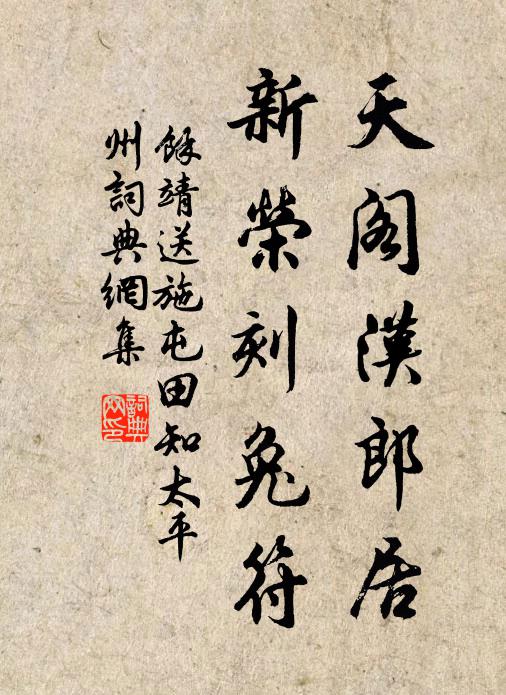 天阁漢郎居
新榮刻兔符
餘靖送施屯田知太平
州詞典網集
詞典網印